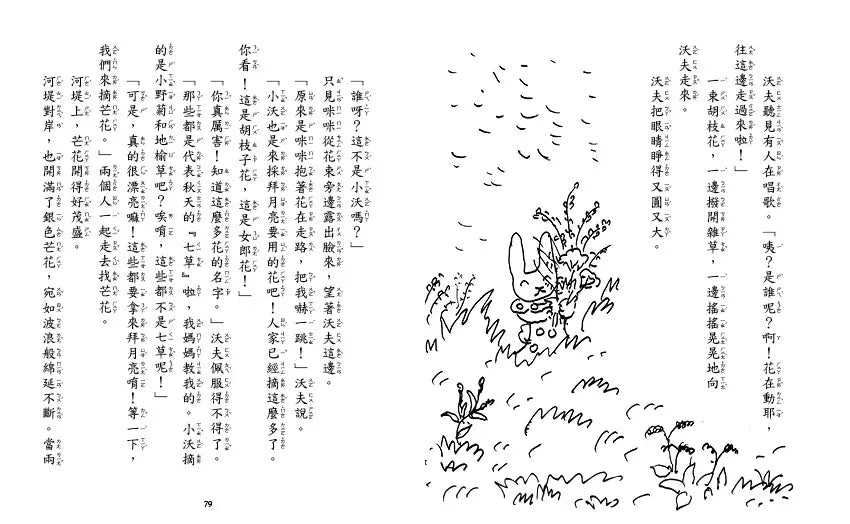 沃夫聽見有人在唱歌。「咦?是誰呢?啊!花在動耶,
往這邊走過來啦!」
一束胡枝花,一邊撥開雜草,一邊搖搖晃晃地向
沃夫走來。
沃夫把眼睛睜得又圓又大。
「誰呀?這不是小沃嗎?」
只見咪咪從花束旁邊露出臉來,望著沃夫這邊。
「原來是咪咪抱著花在走路,把我嚇一跳!」沃夫說。
「小沃也是來採拜月亮要用的花吧!人家已經摘這麼多了。
你看!這是胡枝子花,這是女郎花!」
「你真厲害!知道這麼多花的名字。」沃夫佩服得不得了。
「那些都是代表秋天的『七草』啦,我媽媽教我的。小沃摘
的是小野菊和地榆草吧?唉唷,這些都不是七草呢!」
「可是,真的很漂亮嘛!這些都要拿來拜月亮唷!等一下,
我們來摘芒花。」兩個人一起走去找芒花。
河堤上,芒花開得好茂盛。
河堤對岸,也開滿了銀色芒花,宛如波浪般綿延不斷。當兩
79